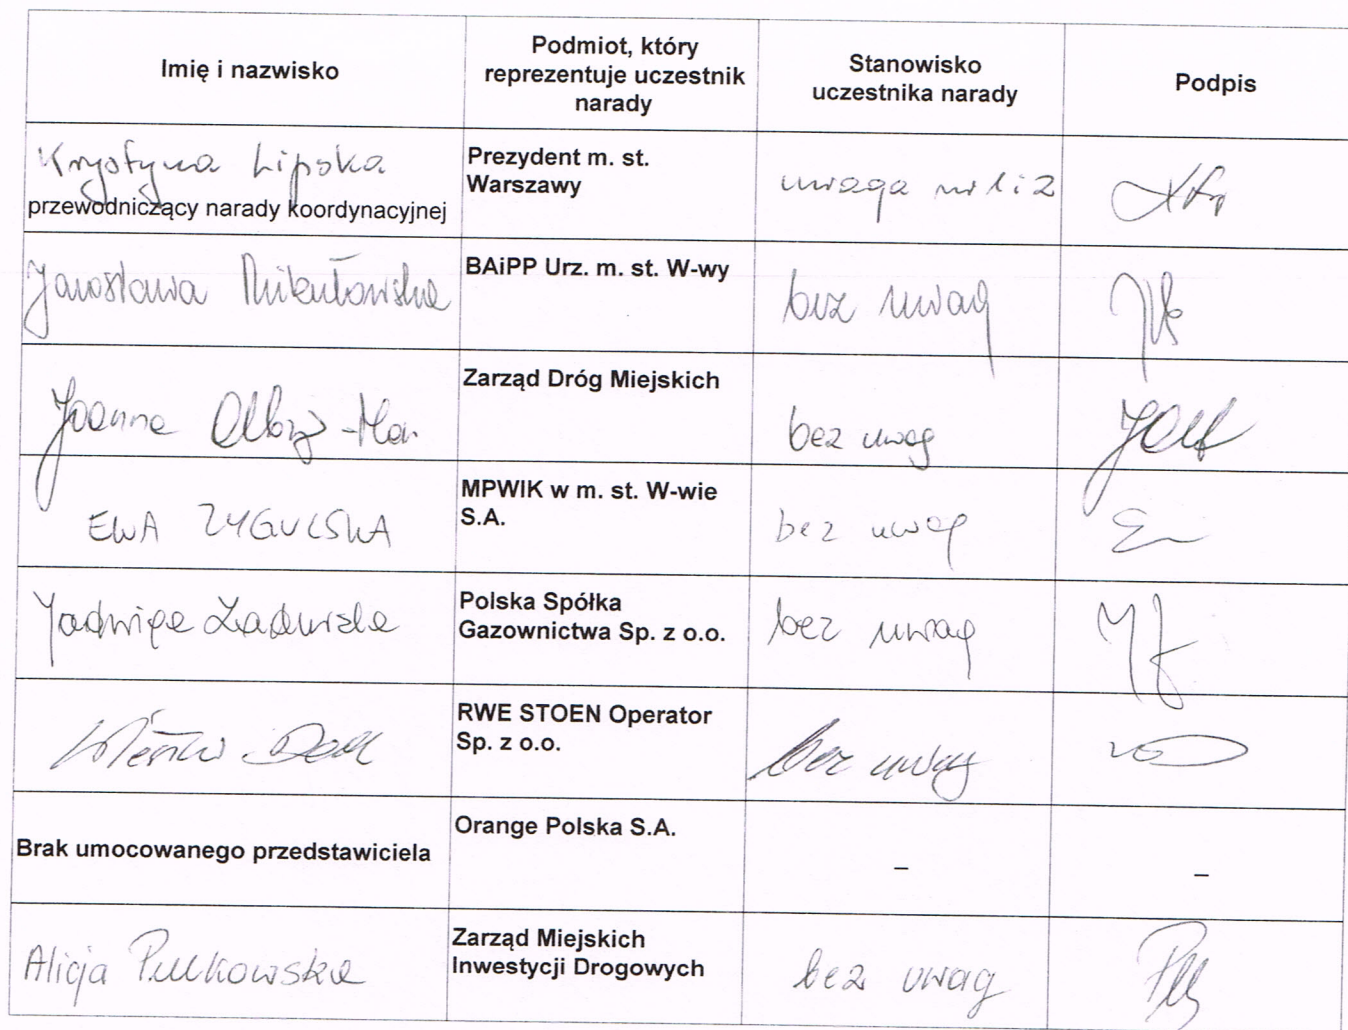 Imię i nazwisko
Podmiot, który
reprezentuje uczestnik
narady
Stanowisko
uczestnika narady
Podpis
Krystyna Lipska
przewodniczący narady koordynacyjnej
Prezydent m. st.
Warszawy
uwaga nr 1 i 2
Jarosława Mikułowska
BAiPP Urz. m. st. W-wy
bez uwag
Joanna
Zarząd Dróg Miejskich
bez uwag
EWA ZYGULSKA
MPWIK w m. st. W-wie
S.A.
bez uwag
Jadwiga
Polska Spółka
Gazownictwa Sp. z o.o.
bez uwag
RWE STOEN Operator
Sp. z o.o.
bez uwag
Brak umocowanego przedstawiciela
Orange Polska S.A.
–
–
Alicja Pułkowska
Zarząd Miejskich
Inwestycji Drogowych
bez uwag